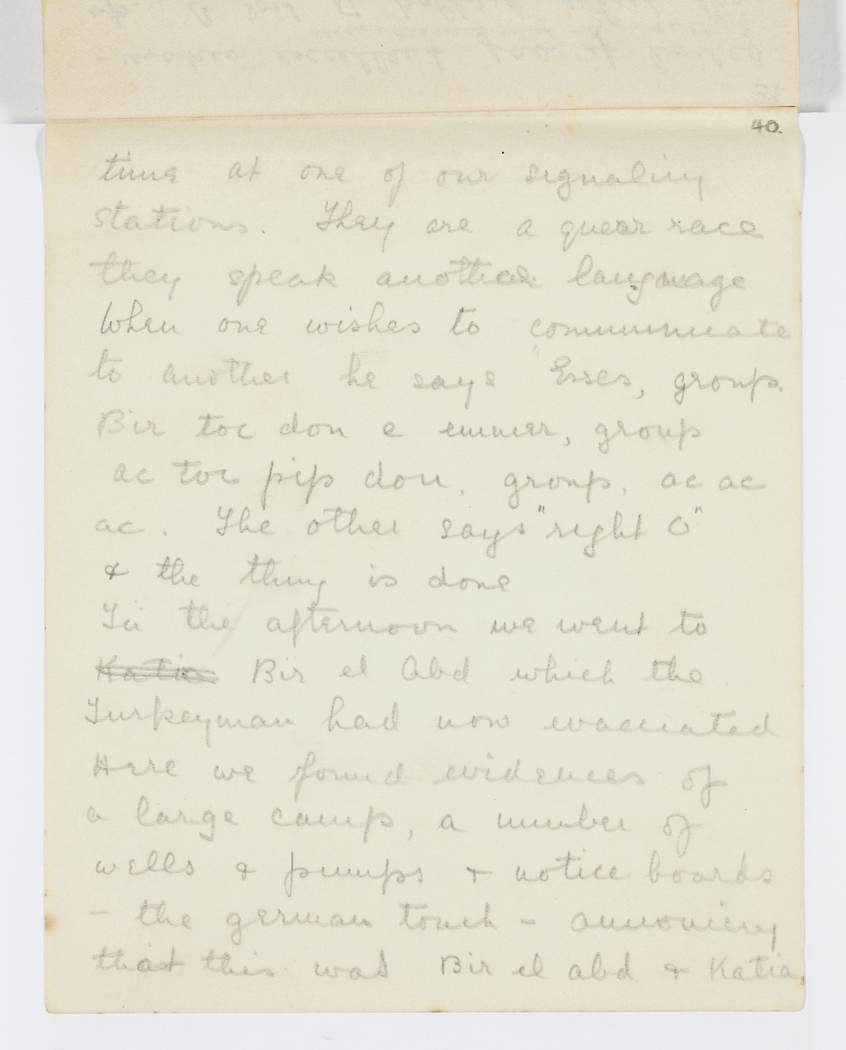 40.
time at one of our signaling
stations. They are a quear race
they speak another language
When one wishes to communicate
to another he says "Esses, group.
Bir toc don e emmer, group
ac toc pip don, group, ac ac
ac. The other says "right O"
& the thing is done
In the afternoon we went to
Katia Bir el Abd which the
Turkeyman had now evacuated
Here we found evidences of
a large camp, a number of
wells & pumps & notice boards
- the german touch - announcing
that this was Bir el abd & Katia